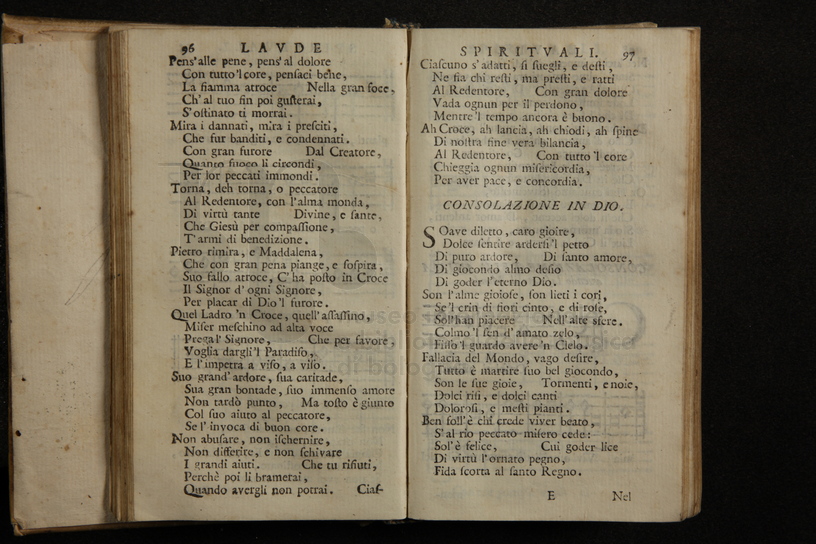 96 LAVDE
Pens' alle pene, pens' al dolore
Con tutto 'l core, pensaci bene,
La fiamma atroce Nella gran foce,
Ch' al tuo fin poi gusterai,
S' ostinato ti morrai.
Mira i dannati, mira i presciti,
Che fur banditi, e condennati.
Con gran furore Dal Creatore,
Quanto fuoco li circondi,
Per lor peccati immondi.
Torna, deh torna, o peccatore
Al Redentore, con l' alma monda,
Di virtù tante Divine, e sante,
Che Giesù per compassione,
T' armi di benedizione.
Pietro rimira, e Maddalena,
Che con gran pena piange, e sospira,
Suo fallo atroce, C' ha posto in Croce
Il Signor d' ogni Signore,
Per placar di Dio 'l furore.
Quel Ladro 'n Croce, quell' assassino,
Miser meschino ad alta voce
Prega l' Signore, Che per favore,
Voglia dargli 'l Paradiso,
E l' impetra a viso, a viso.
Suo grand' ardore, sua caritade,
Sua gran bontade, suo immenso amore
Non tardò punto, Ma tosto è giunto
Col suo aiuto al peccatore,
Se l' invoca di buon core.
Non abusare, non ischernire,
Non differire, e non schivare
I grandi aiuti. Che tu rifiuti,
Perchè poi li bramerai,
Quando avergli non potrai. Cias-
SPIRITVALI. 97
Ciascuno s' adatti, si svegli, e desti,
Ne sia chi resti, ma presti, e ratti
Al Redentore, Con gran dolore
Vada ognun per il perdono,
Mentre 'l tempo ancora è buono.
Ah Croce, ah lancia, ah chiodi, ah spine
Di nostra fine vera bilancia,
Al Redentore, Con tutto 'l core
Chieggia ognun misericordia,
Per aver pace, e concordia.
CONSOLAZIONE IN DIO.
SOave diletto, caro gioire,
Dolce sentire ardersi 'l petto
Di puro ardore, Di santo amore,
Di giocondo almo desio
Di goder l' eterno Dio.
Son l' alme gioiose, son lieti i cori,
Se 'l crin di fiori cinto, e di rose,
Sol' han piacere Nell' alte sfere.
Colmo 'l sen d' amato zelo,
Fisso 'l guardo avere 'n Cielo.
Fallacia del Mondo, vago desire,
Tutto è martire suo bel giocondo,
Son le sue gioie, Tormenti, e noie,
Dolci risi, e dolci canti
Dolorosi, e mesti pianti.
Ben soll' è chi crede viver beato,
S' al rio peccato misero cede:
Sol' è felice, Cui goder lice
Di virtù l' ornato pegno,
Fida scorta al santo Regno.
E Nel